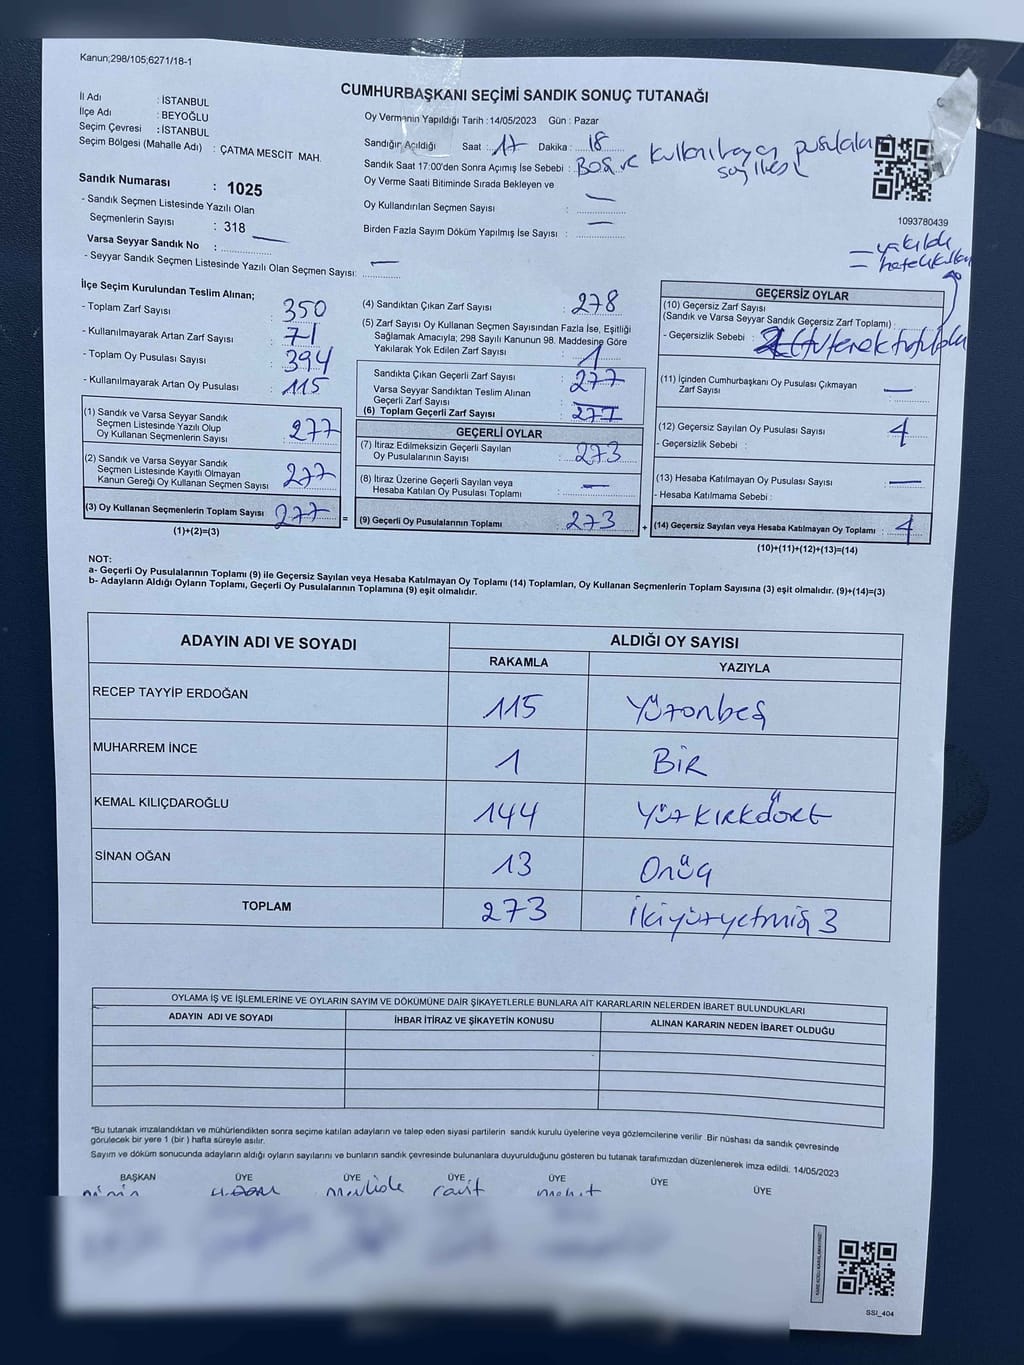 Kanun;298/105;6271/18-1
CUMHURBAŞKANI SEÇİMİ SANDIK SONUÇ TUTANAĞI
İl Adı : İSTANBUL
İlçe Adı : BEYOĞLU
Seçim Çevresi : İSTANBUL
Seçim Bölgesi (Mahalle Adı) : ÇATMA MESCİT MAH.
Sandık Numarası : 1025
- Sandık Seçmen Listesinde Yazılı Olan
Seçmenlerin Sayısı : 318
Varsa Seyyar Sandık No :
- Seyyar Sandık Seçmen Listesinde Yazılı Olan Seçmen Sayısı: —
Oy Vermenin Yapıldığı Tarih : 14/05/2023 Gün : Pazar
Sandığın Açıldığı Saat : 17 Dakika : 18
Sandık Saat 17:00'den Sonra Açımış İse Sebebi : Boş ve kullanılmayan pusulala
sayılması
Oy Verme Saati Bitiminde Sırada Bekleyen ve
Oy Kullandırılan Seçmen Sayısı : —
Birden Fazla Sayım Döküm Yapılmış İse Sayısı : —
1093780439
= yakıldı
İlçe Seçim Kurulundan Teslim Alınan;
- Toplam Zarf Sayısı 350
- Kullanılmayarak Artan Zarf Sayısı 71
- Toplam Oy Pusulası Sayısı 394
- Kullanılmayarak Artan Oy Pusulası 115
(1) Sandık ve Varsa Seyyar Sandık
Seçmen Listesinde Yazılı Olup
Oy Kullanan Seçmenlerin Sayısı 277
(2) Sandık ve Varsa Seyyar Sandık
Seçmen Listesinde Kayıtlı Olmayan
Kanun Gereği Oy Kullanan Seçmen Sayısı 277
(3) Oy Kullanan Seçmenlerin Toplam Sayısı 277
(1)+(2)=(3)
(4) Sandıktan Çıkan Zarf Sayısı 278
(5) Zarf Sayısı Oy Kullanan Seçmen Sayısından Fazla İse, Eşitliği
Sağlamak Amacıyla; 298 Sayılı Kanunun 98. Maddesine Göre
Yakılarak Yok Edilen Zarf Sayısı : 1
Sandıkta Çıkan Geçerli Zarf Sayısı 277
Varsa Seyyar Sandıktan Teslim Alınan
Geçerli Zarf Sayısı
(6) Toplam Geçerli Zarf Sayısı 277
GEÇERLİ OYLAR
(7) İtiraz Edilmeksizin Geçerli Sayılan
Oy Pusulalarının Sayısı 273
(8) İtiraz Üzerine Geçerli Sayılan veya
Hesaba Katılan Oy Pusulası Toplamı : —
= (9) Geçerli Oy Pusulalarının Toplamı 273
GEÇERSİZ OYLAR
(10) Geçersiz Zarf Sayısı
(Sandık ve Varsa Seyyar Sandık Geçersiz Zarf Toplamı) :
- Geçersizlik Sebebi :
(11) İçinden Cumhurbaşkanı Oy Pusulası Çıkmayan
Zarf Sayısı : —
(12) Geçersiz Sayılan Oy Pusulası Sayısı 4
- Geçersizlik Sebebi :
(13) Hesaba Katılmayan Oy Pusulası Sayısı —
- Hesaba Katılmama Sebebi :
+ (14) Geçersiz Sayılan veya Hesaba Katılmayan Oy Toplamı : 4
(10)+(11)+(12)+(13)=(14)
NOT:
a- Geçerli Oy Pusulalarının Toplamı (9) ile Geçersiz Sayılan veya Hesaba Katılmayan Oy Toplamı (14) Toplamları, Oy Kullanan Seçmenlerin Toplam Sayısına (3) eşit olmalıdır. (9)+(14)=(3)
b- Adayların Aldığı Oyların Toplamı, Geçerli Oy Pusulalarının Toplamına (9) eşit olmalıdır.
ADAYIN ADI VE SOYADI ALDIĞI OY SAYISI
RAKAMLA YAZIYLA
RECEP TAYYİP ERDOĞAN 115 Yüzonbeş
MUHARREM İNCE 1 BİR
KEMAL KILIÇDAROĞLU 144 Yüzkırkdört
SİNAN OĞAN 13 Onüç
TOPLAM 273 İkiyüzyetmiş 3
OYLAMA İŞ VE İŞLEMLERİNE VE OYLARIN SAYIM VE DÖKÜMÜNE DAİR ŞİKAYETLERLE BUNLARA AİT KARARLARIN NELERDEN İBARET BULUNDUKLARI
ADAYIN ADI VE SOYADI İHBAR İTİRAZ VE ŞİKAYETİN KONUSU ALINAN KARARIN NEDEN İBARET OLDUĞU
*Bu tutanak imzalandıktan ve mühürlendikten sonra seçime katılan adayların ve talep eden siyasi partilerin sandık kurulu üyelerine veya gözlemcilerine verilir .Bir nüshası da sandık çevresinde
görülecek bir yere 1 (bir ) hafta süreyle asılır.
Sayım ve döküm sonucunda adayların aldığı oyların sayılarını ve bunların sandık çevresinde bulunanlara duyurulduğunu gösteren bu tutanak tarafımızdan düzenlenerek imza edildi. 14/05/2023
BAŞKAN ÜYE ÜYE ÜYE ÜYE ÜYE ÜYE
SSI_404